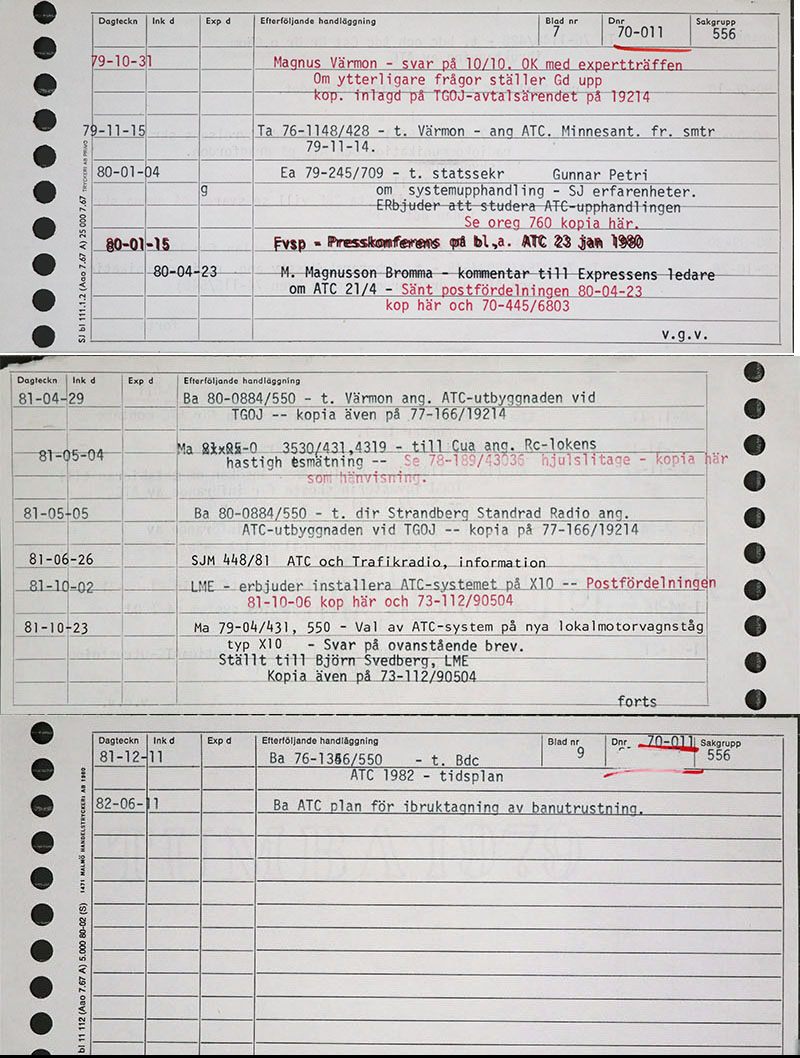 Dagteckn Ink d Exp d Efterföljande handläggning Blad nr 7 Dnr 70-011 Sakgrupp 556
79-10-31 Magnus Värmon - svar på 10/10. OK med expertträffen
Om ytterligare frågor ställer Gd upp
kop. inlagd på TGOJ-avtalsärendet på 19214
79-11-15 Ta 76-1148/428 - t. Värmon - ang ATC. Minnesant. fr. smtr
79-11-14.
80-01-04 Ea 79-245/709 - t. statssekr Gunnar Petri
g om systemupphandling - SJ erfarenheter.
ERbjuder att studera ATC-upphandlingen
Se oreg 760 kopia här.
80-01-15 Fvsp - Presskonferens på bl,a. ATC 23 jan 1980
80-04-23 M. Magnusson Bromma - kommentar till Expressens ledare
om ATC 21/4 - Sänt postfördelningen 80-04-23
kop här och 70-445/6803
v.g.v.
SJ bl 111:1.2 (Aao 7.67 A) 25 000 7.67 TRYCKERI AB PRIMO
Dagteckn Ink d Exp d Efterföljande handläggning
81-04-29 Ba 80-0884/550 - t. Värmon ang. ATC-utbyggnaden vid
TGOJ -- kopia även på 77-166/19214
81-05-04 Ma 3530/431,4319 - till Cua ang. Rc-lokens
hastigh esmätning -- Se 78-189/43036 hjulslitage - kopia här
som hänvisning.
81-05-05 Ba 80-0884/550 - t. dir Strandberg Standrad Radio ang.
ATC-utbyggnaden vid TGOJ -- kopia på 77-166/19214
81-06-26 SJM 448/81 ATC och Trafikradio, information
81-10-02 LME - erbjuder installera ATC-systemet på X10 -- Postfördelningen
81-10-06 kop här och 73-112/90504
81-10-23 Ma 79-04/431, 550 - Val av ATC-system på nya lokalmotorvagnståg
typ X10 - Svar på ovanstående brev.
Ställt till Björn Svedberg, LME
Kopia även på 73-112/90504
forts
Dagteckn Ink d Exp d Efterföljande handläggning Blad nr 9 Dnr 70-011 Sakgrupp 556
81-12-11 Ba 76-1366/550 - t. Bdc
ATC 1982 - tidsplan
82-06-11 Ba ATC plan för ibruktagning av banutrustning.
bl 11 112 (Aao 7.67 A) 5.000 80-02 (S) 1471 MALMÖ HANDELSTRYCKERI AB 1980